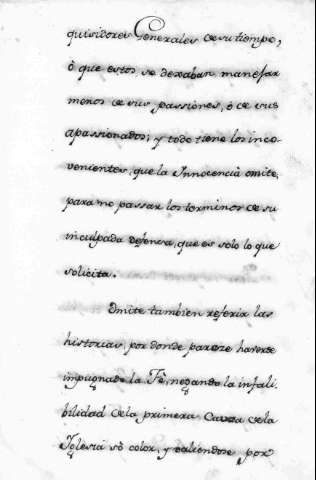 quisidores Generales de su tiempo,
ò que estos se dexaban manejar
menos de sus passiones, ò de sus
apassionados; y todo tiene los inco-
venientes, que la Innocencia omite,
para no passar los terminos de su
inculpada defensa, que es solo lo que
solicita.
Omite tambien referir las
historias por donde pareze haverse
impugnado la Fè, negando la infali-
bilidad de la primera Causa de la
Iglesia sò color, y valiendose por